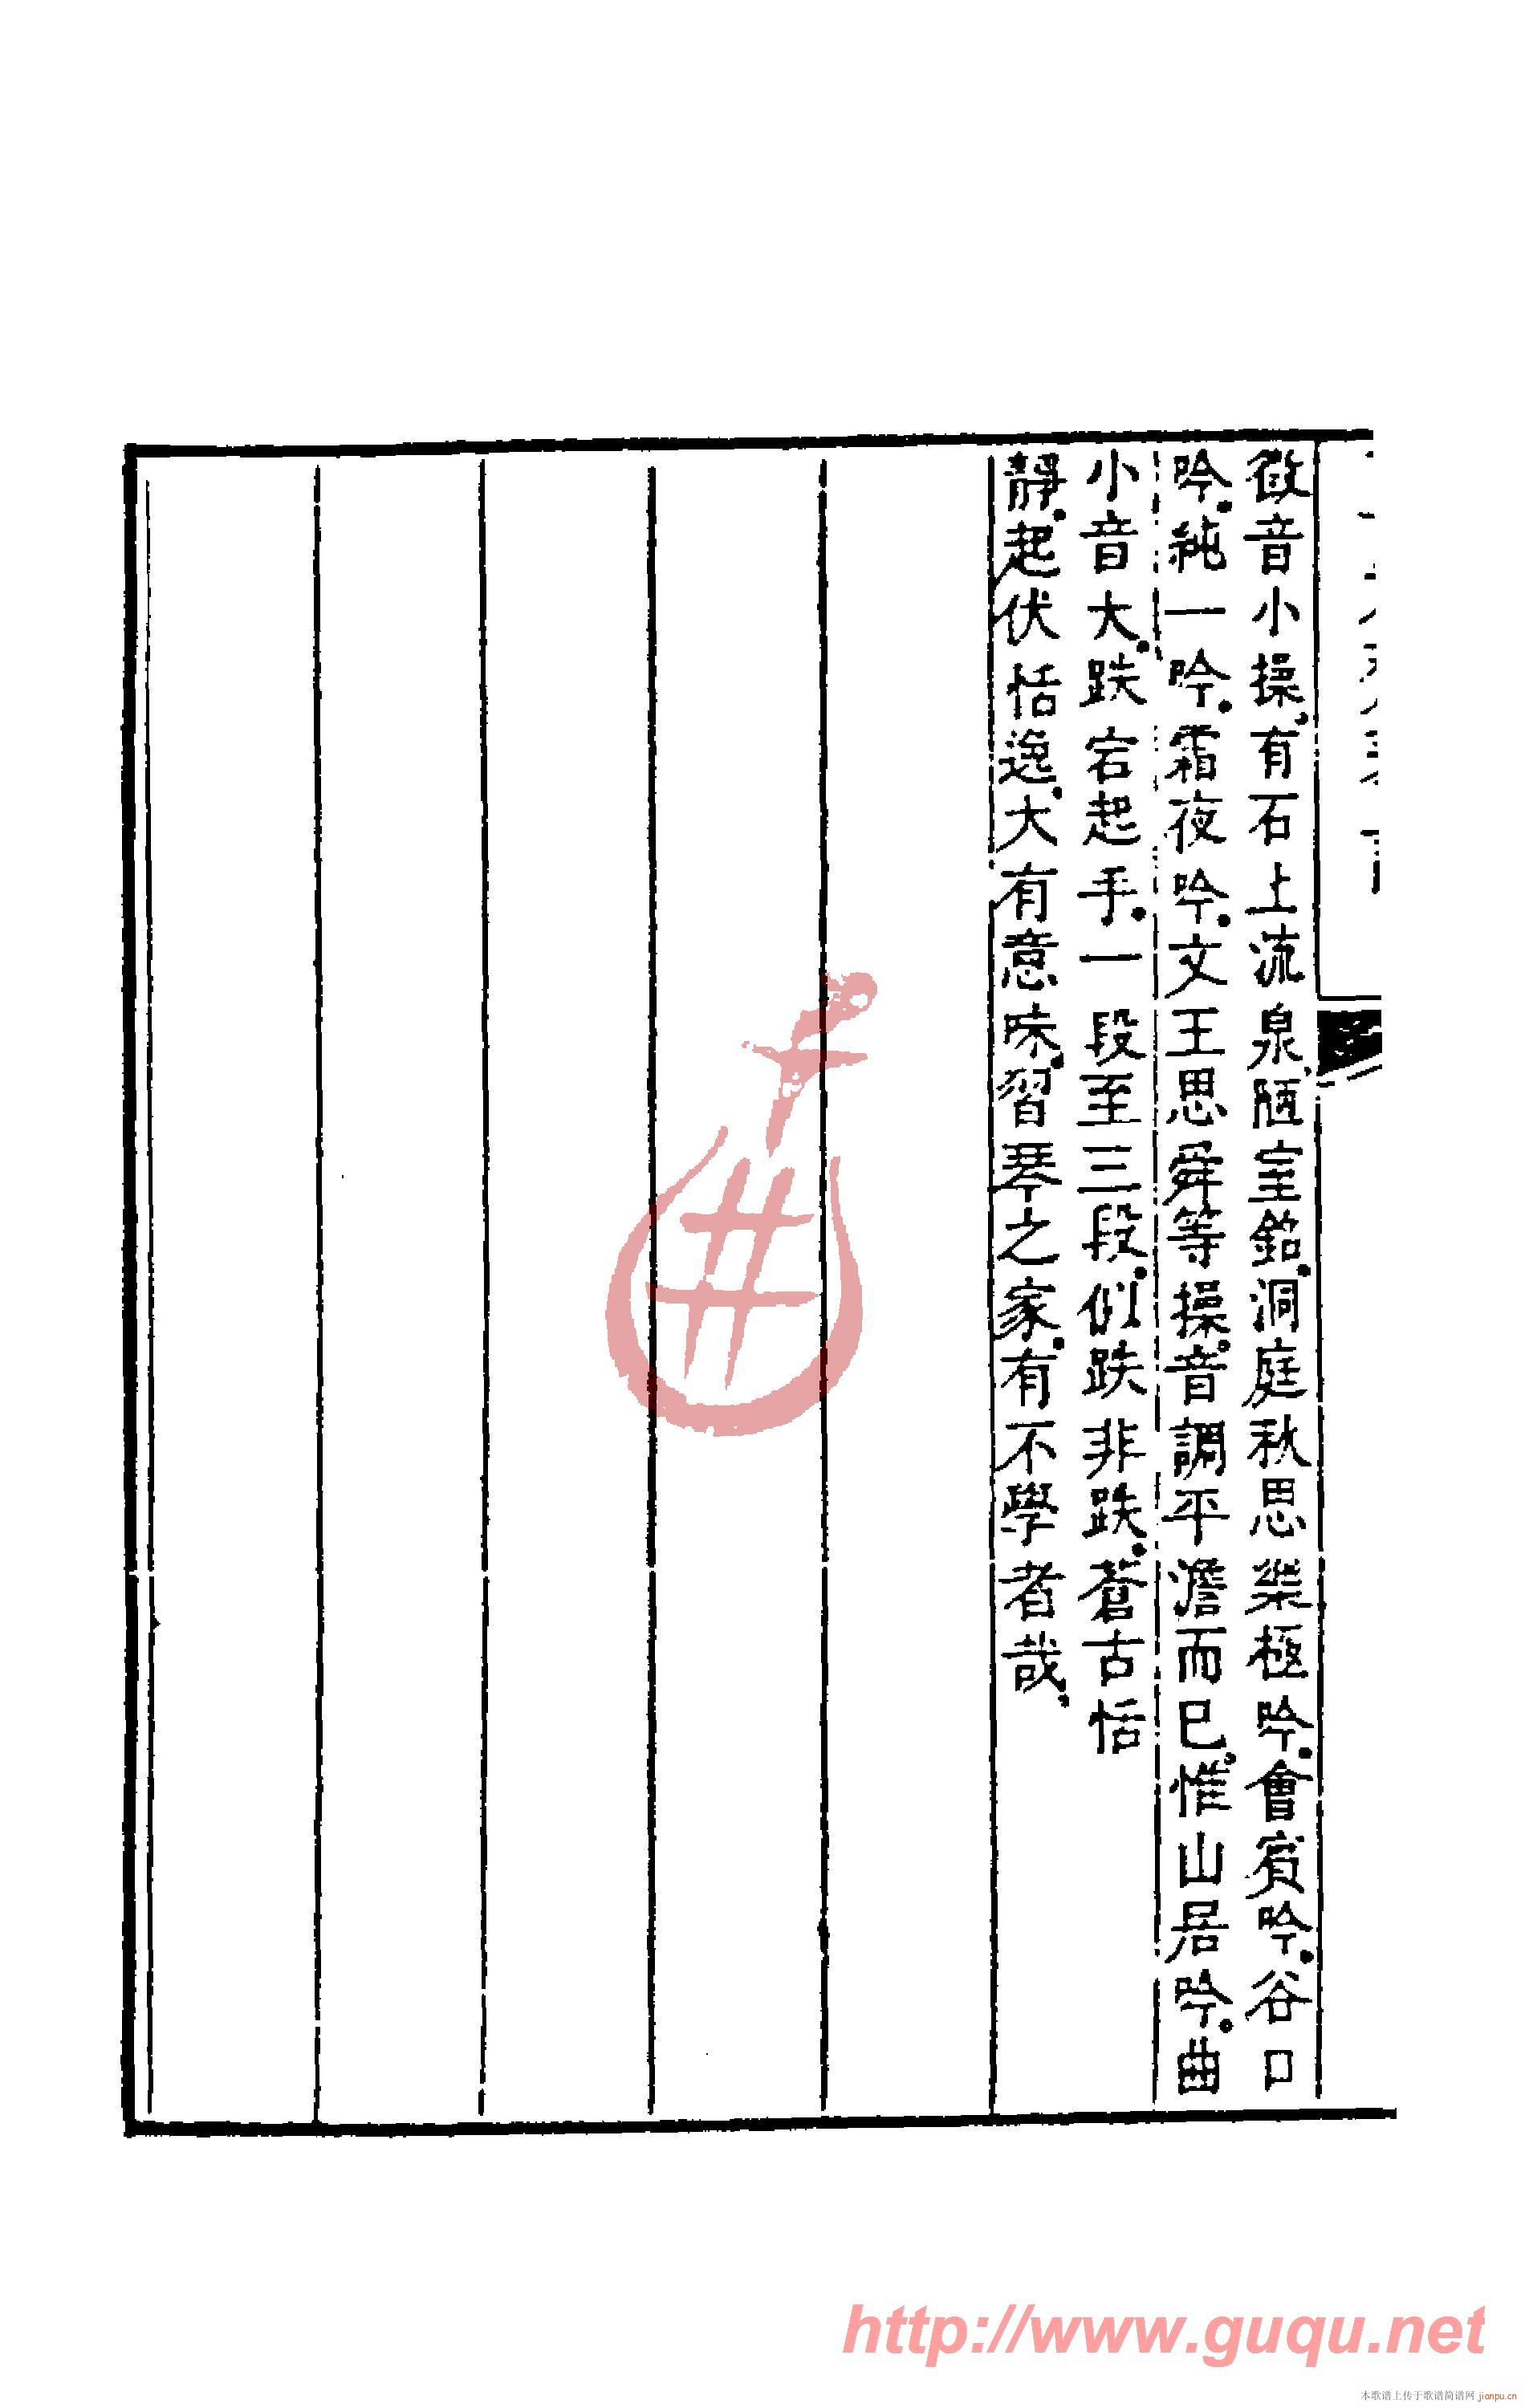 徵音小操有石上流泉陋室銘洞庭秋思樂極吟會賓吟谷口
吟純一吟霜夜吟文王思舜等操音調平澹而已惟山居吟曲
小音大跌宕起手一段至三段似跌非跌蒼古恬
靜起伏恬逸大有意味習琴之家有不學者哉
http://www.guqu.net
本歌谱上传于歌谱简谱网 jianpu.cn